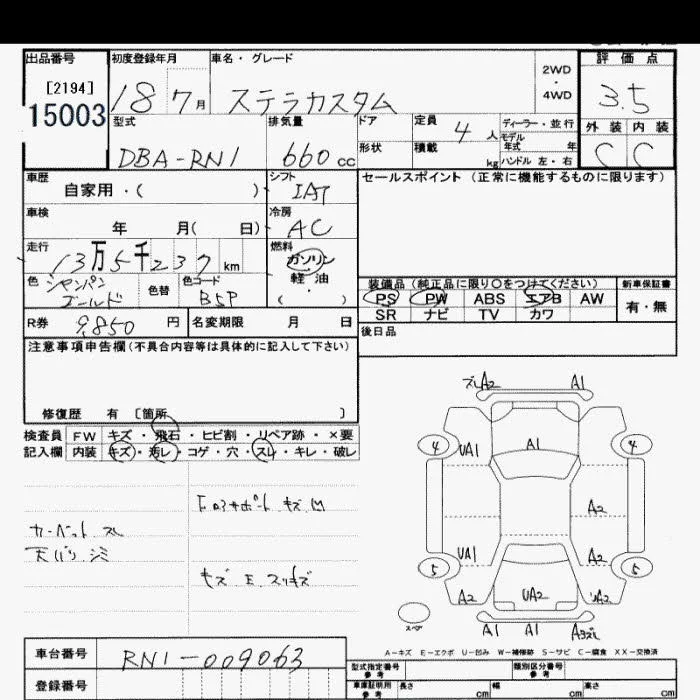 出品番号 初度登録年月 車名・グレード 評価点
[2194] 15003 18 7月 ステラカスタム 2WD・4WD 3.5
型式 排気量 ドア 定員 4人 ディーラー・並行 外装 内装
DBA-RN1 660cc 形状 積載 kg モデル年式 年 C C
ハンドル 左・右
車歴 自家用・( ) シフト IAT セールスポイント(正常に機能するものに限ります)
車検 年 月( 日) 冷房 AC
走行 13万5千237km 燃料 ガソリン・軽油・( )
色 シャンパンゴールド 色替 色コード B5P
装備品(純正品に限り○をつけてください) 新車保証書
PS PW ABS エアB AW 有・無
SR ナビ TV カワ
R券 9,850円 名変期限 月 日 後日品
注意事項申告欄(不具合内容等は具体的に記入して下さい)
修復歴 有 [箇所 ]
検査員 FW キズ・飛石・ヒビ割・リペア跡・×要
記入欄 内装 キズ・汚レ・コゲ・穴・スレ・キレ・破レ
カーペット スレ
天バリ シミ
キズ E スリキズ
ズレA2 A1
4 UA1 A1 4
A2
UA1 A2
5 5
A2 UA2
スペア
A1 A1 A3ズレ
A-キズ E-エクボ U-凹み W-補修跡 S-サビ C-腐食 XX-交換済
車台番号 RN1-009063
登録番号
型式指定番号 参考 類別区分番号 参考
車庫証明用 参考 長さ cm 幅 cm 高さ cm